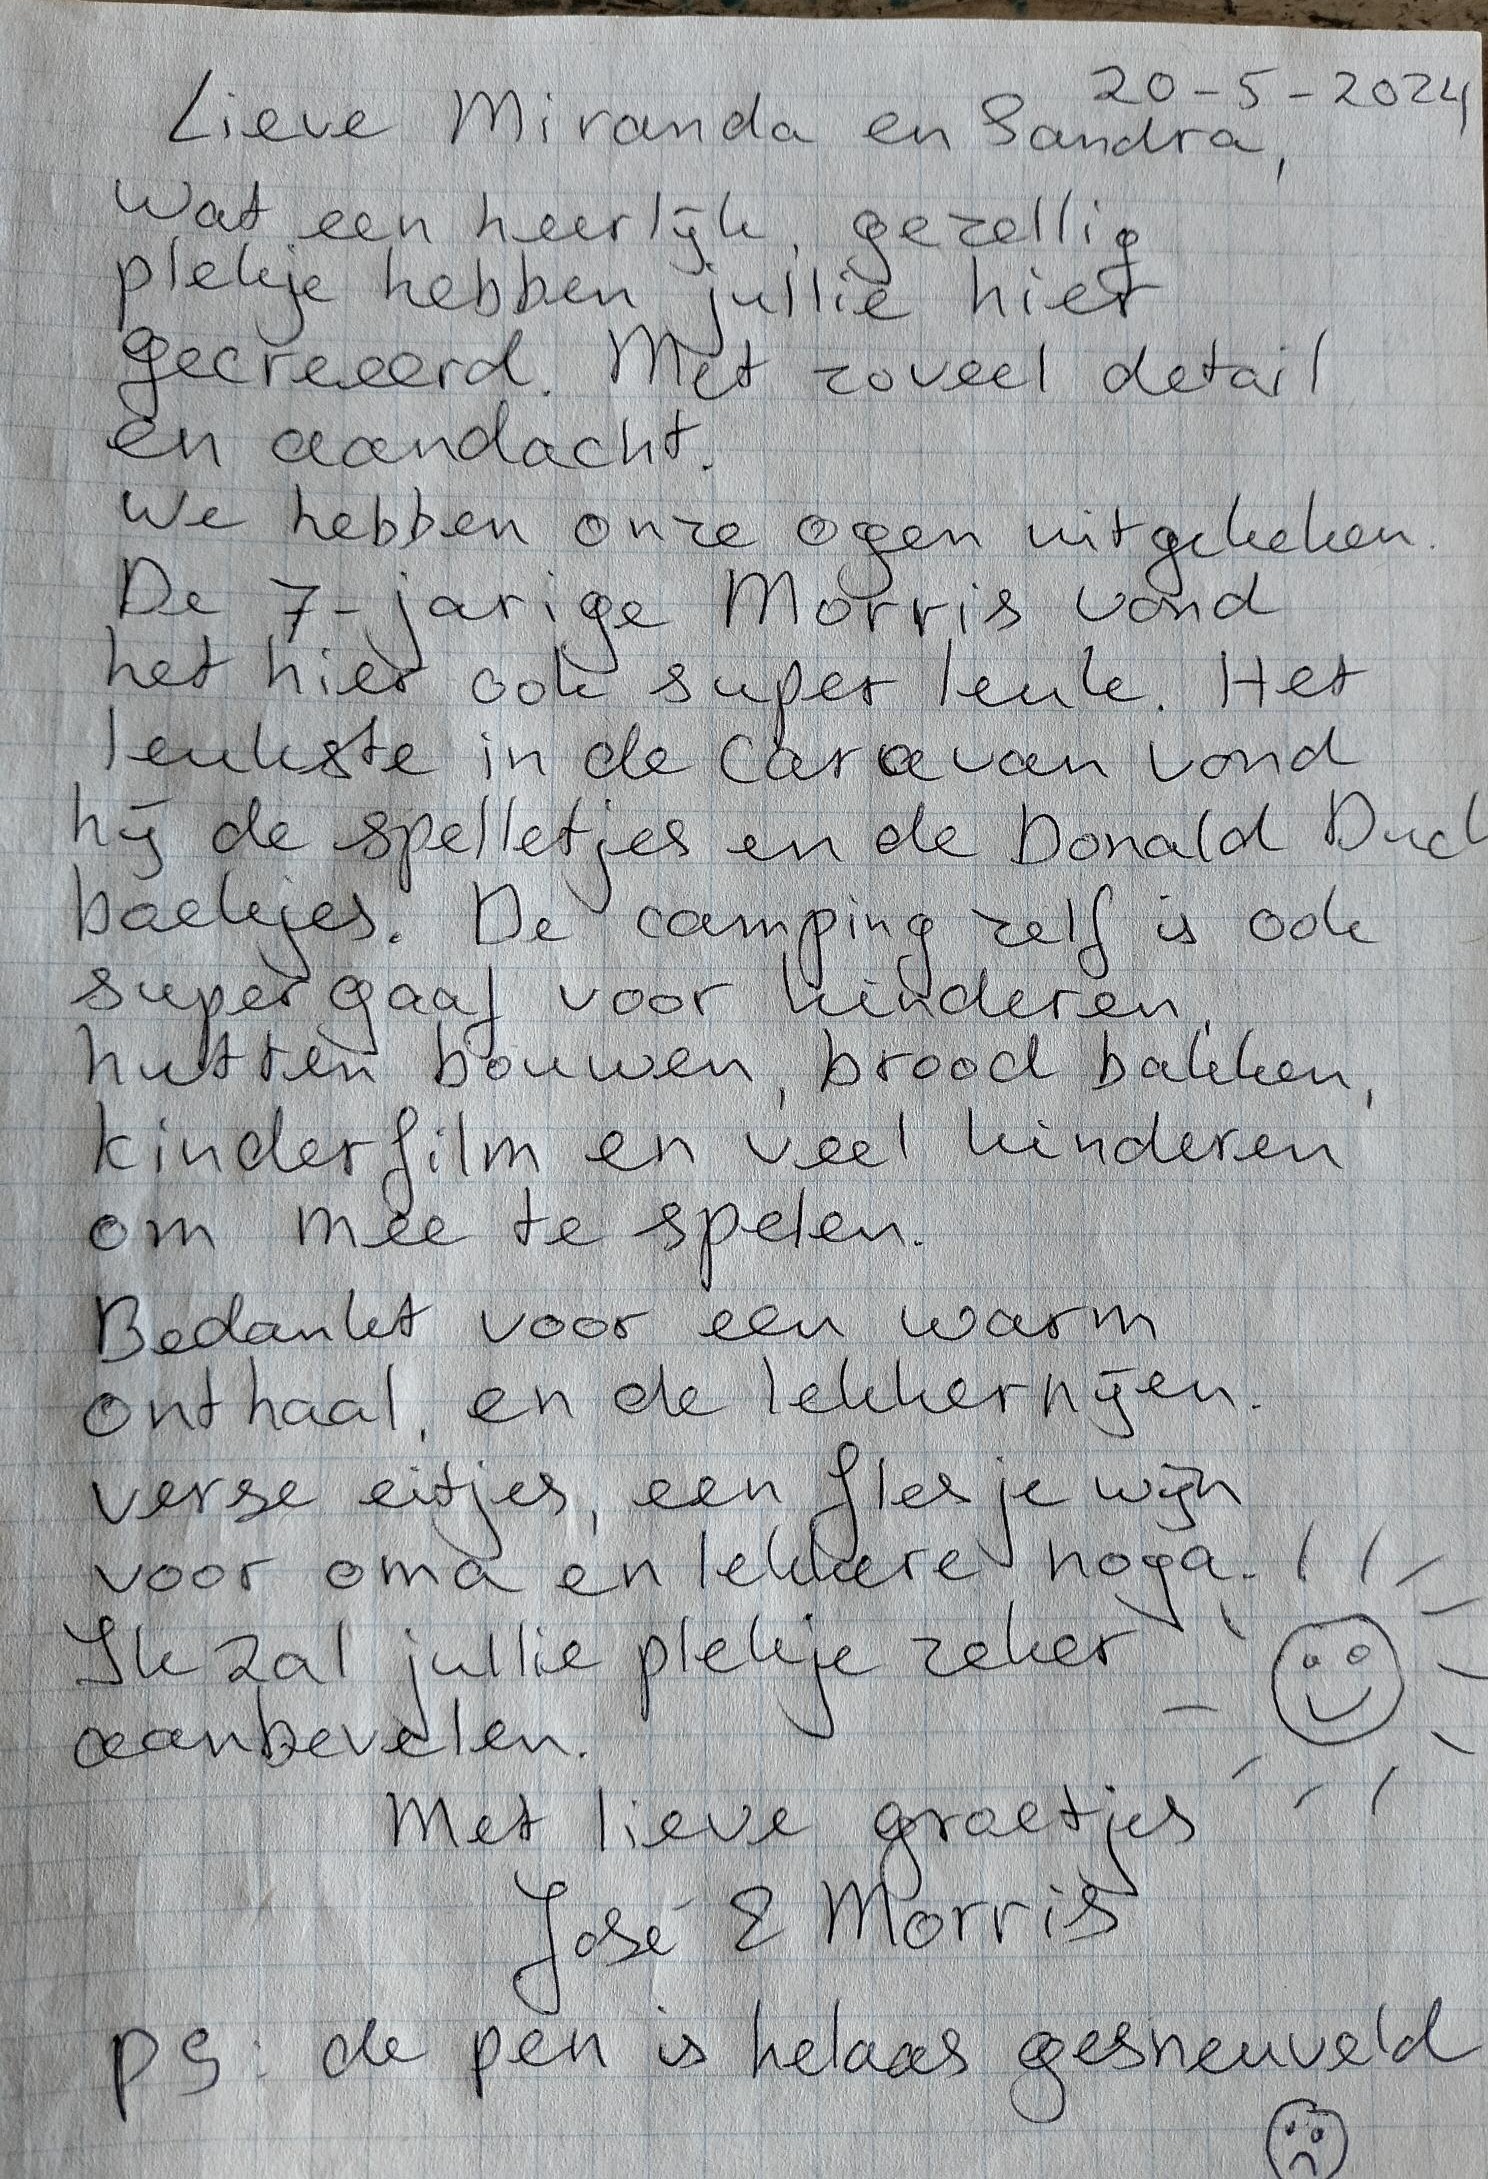 20-5-2024
Lieve Miranda en Sandra,
Wat een heerlijk, gezellig
plekje hebben jullie hier
gecreeerd. Met zoveel detail
en aandacht.
We hebben onze ogen uitgekeken.
De 7-jarige Morris vond
het hier ook super leuk. Het
leukste in de caravan vond
hij de spelletjes en de Donald Duck
boekjes. De camping zelf is ook
super gaaf voor kinderen,
hutten bouwen, brood bakken,
kinderfilm en veel kinderen
om mee te spelen.
Bedankt voor een warm
onthaal, en de lekkernijen.
verse eitjes, een flesje wijn
voor oma en lekkere noga.
Ik zal jullie plekje zeker
aanbevelen.
Met lieve groetjes
José & Morris
PS: de pen is helaas gesneuveld